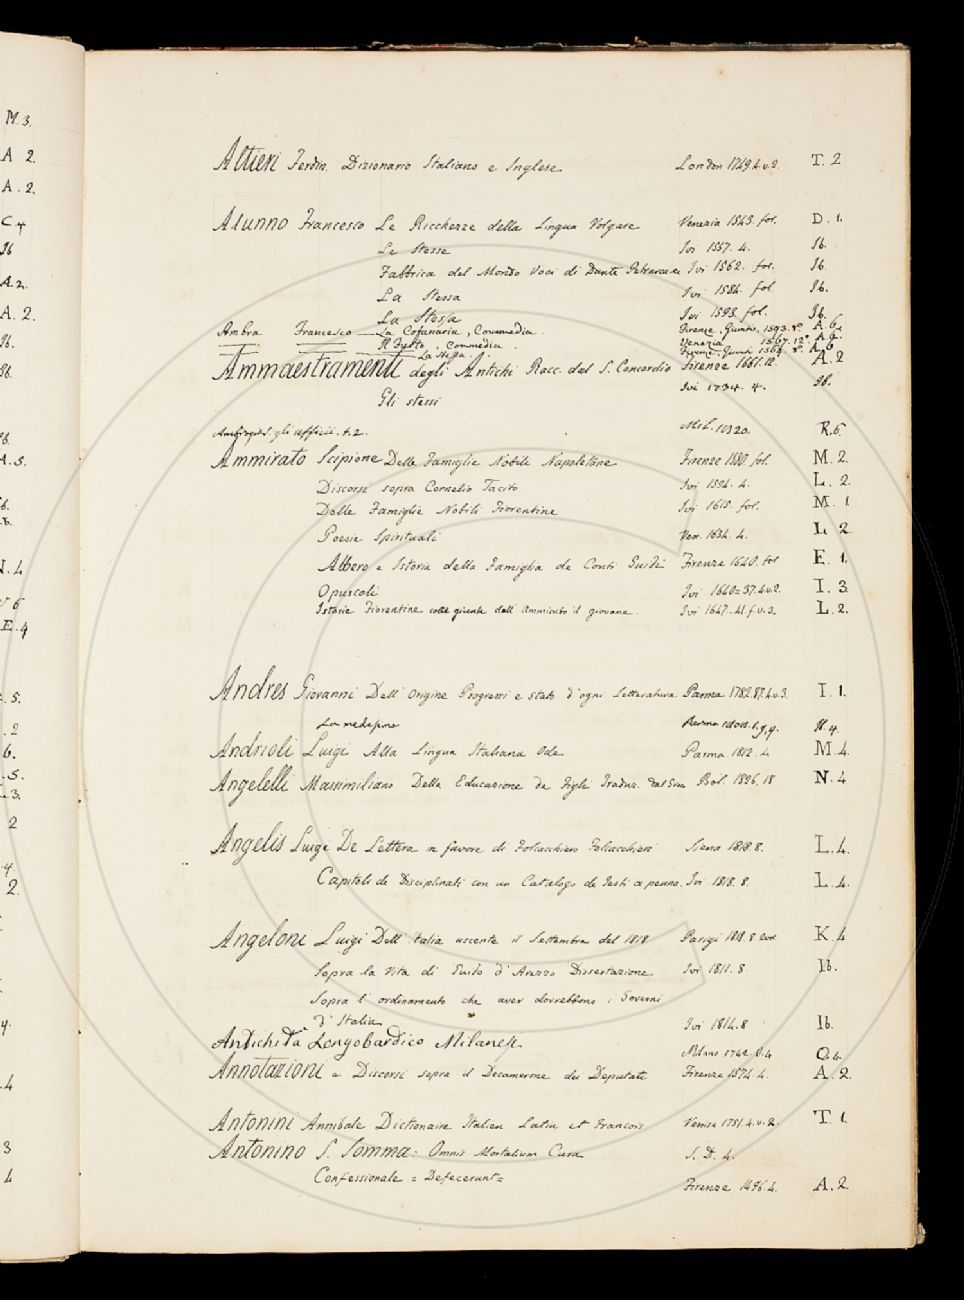 M. 3.
A 2.
A. 2.
C. 4
Ib
A. 2.
A. 2.
Ib.
Ib.
A. 5.
N. 4
E. 4
5.
2
6.
5.
3.
2
4
2.
4.
4
3
4
Altieri Ferdin. Dizionario Italiano e Inglese London 1749.4.v.2. T. 2
Alunno Francesco Le Ricchezze della Lingua Volgare Venezia 1543. fol. D. 1.
Le Stesse Ivi 1557. 4. Ib.
Fabbrica del Mondo Voci di Dante Petrarca ec Ivi 1562. fol. Ib.
La Stessa Ivi 1584. fol. Ib.
La Stessa Ivi 1593. fol. Ib.
Ambra Francesco La Cofanaria, Commedia. Firenze, Giunti, 1593. 8° A. 6.
Il Furto, Commedia. Venezia 1567. 12° A. 6.
La Stessa. Firenze, Giunti 1564. 8° A. 6
Ammaestramenti degli Antichi Racc. dal S. Concordio Firenze 1661.12. A. 2
Gli stessi Ivi 1734. 4. Ib.
gli ufficii. t. 2. Mil. R. 6.
Ammirato Scipione Delle Famiglie Nobili Napoletane Firenze 1580. fol. M. 2.
Discorsi sopra Cornelio Tacito Ivi 1594. 4. L. 2.
Delle Famiglie Nobili Fiorentine Ivi 1615. fol. M. 1
Poesie Spirituali Ven. 1634. 4. L. 2
Albero e Istoria della Famiglia de Conti Guidi Firenze 1640. fol E. 1.
Opuscoli Ivi 1640=37.4.v.2. I. 3
Istorie Fiorentine colle giunte dell' Ammirato il giovane. Ivi 1647-41.f.v.3. L. 2.
Andres Giovanni Dell' Origine Progressi e stato d'ogni Letteratura Parma 1782.87.4.v.3. I. 1.
La medesima Parma
Andrioli Luigi Alla Lingua Italiana Ode Parma 1812. 4 M. 4.
Angelelli Massimiliano Della Educazione de figli Traduz. Bol. 1826. 18 N. 4
Angelis Luigi De Lettera in favore di Folcacchiero Folcacchieri Siena 1818. 8. L. 4.
Capitoli de Disciplinati con un Catalogo de Testi a penna. Ivi. 1818. 8. L. 4.
Angeloni Luigi Dell' Italia uscente il Settembre del 1818 Parigi 1818. 8 K. 4
Sopra la Vita di Guido d' Arezzo Dissertazione Ivi 1811. 8 Ib.
Sopra l' ordinamento che aver dovrebbono i Governi
d' Italia Ivi 1814. 8 Ib.
Antichità Longobardico Milanesi. Milano O. 4.
Annotazioni e Discorsi sopra il Decamerone dei Deputati Firenze 1574. 4. A. 2.
Antonini Annibale Dictionaire Italien Latin et Francois Venise 1751.4.v.2. T. 1.
Antonino S. Somma: Omnis Mortalium Cura S. D. 4.
Confessionale = Defecerunt= Firenze 1496. 4. A. 2.